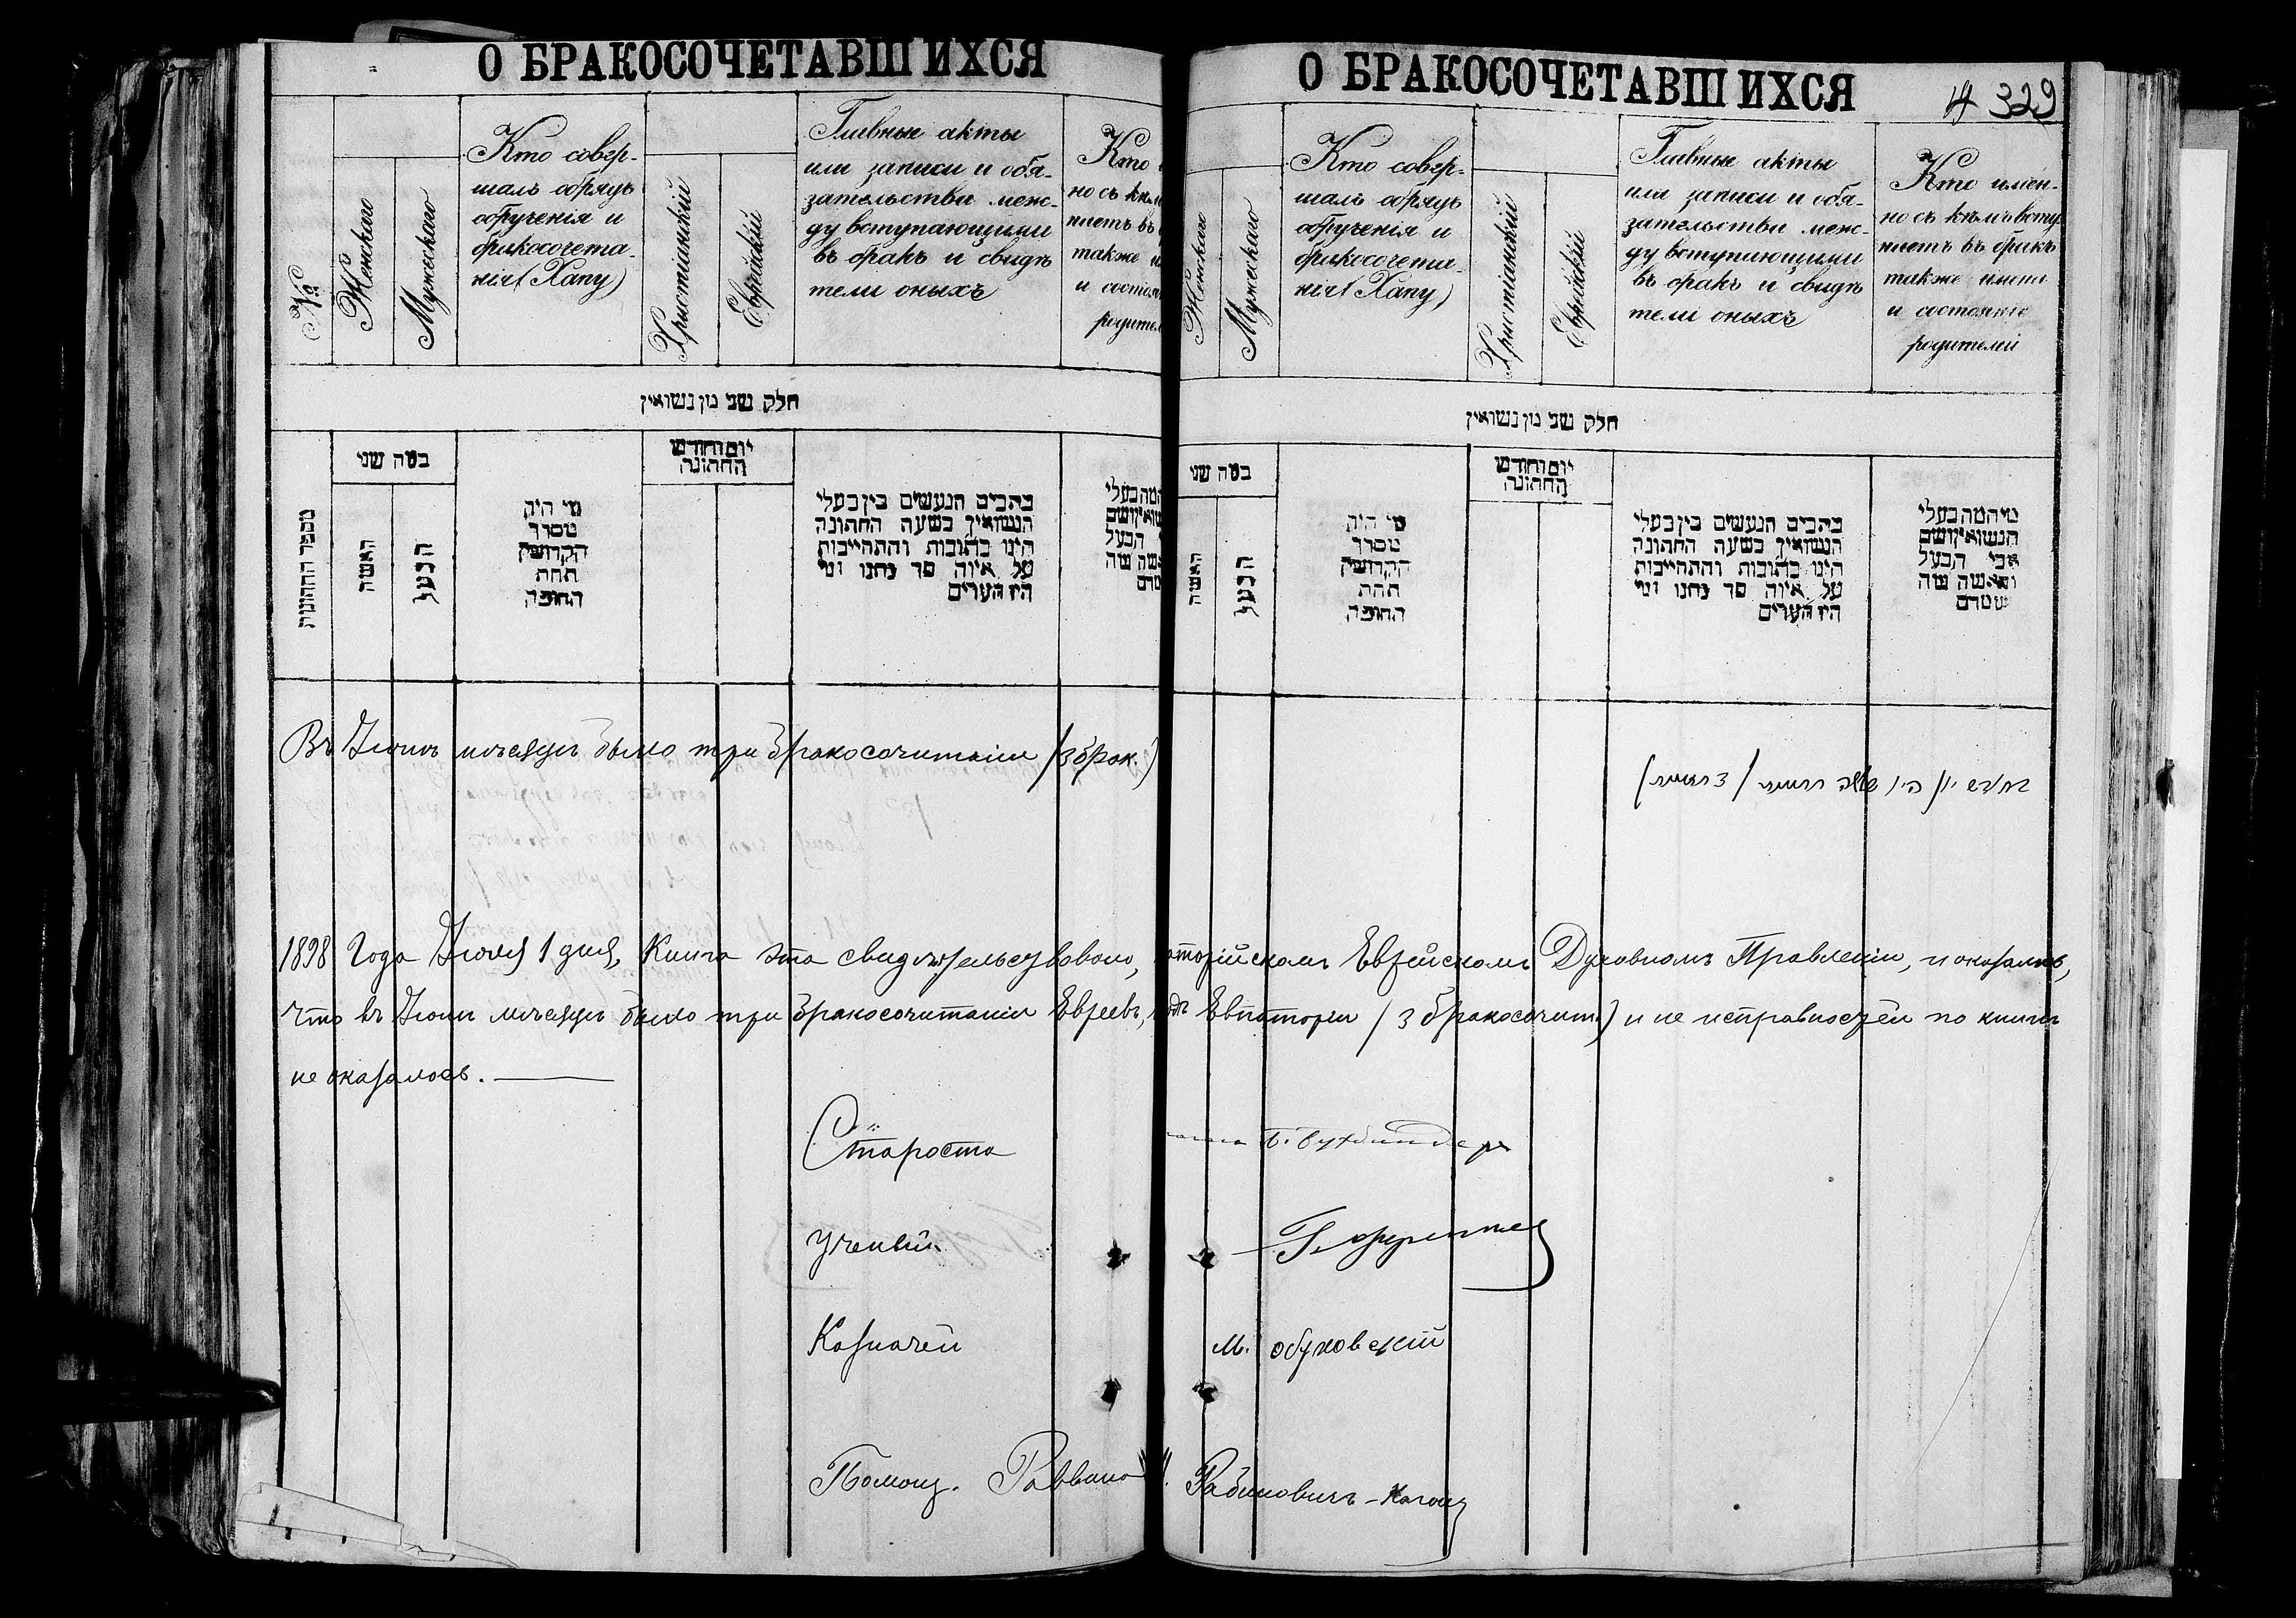 О БРАКОСОЧЕТАВШИХСЯ
№№
Женскаго
Мужескаго
Кто совер-
шалъ обрядъ
обрученія и
бракосочета-
нія (Хапу)
Христіанскій
Еврейскій
Главные акты
или записи и обя-
зательства меж-
ду вступающими
въ бракъ и свидѣ
тели оныхъ
Кто
но съ кѣм
паетъ въ
также и
и состоя
родител
חלק שני מן נשואין
מספר החתונות
כמה שני
האשה
הבעל
מי היה
מסדר
הקדושין
תחת
החופה
יום וחודש
החתונה
כתבים הנעשים בין בעלי
הנשואין בשעה החתונה
הינו כתובות והתחייבות
על איזה סך נתנו ומי
היו העדים
Въ Іюнѣ мѣсяцѣ было три бракосочитаніи (3 брак.)
О БРАКОСОЧЕТАВШИХСЯ
329
Женскаго
Мужескаго
Кто совер-
шалъ обрядъ
обрученія и
бракосочета-
нія (Хапу)
Христіанскій
Еврейскій
Главные акты
или записи и обя-
зательства меж-
ду вступающими
въ бракъ и свидѣ
тели оныхъ
Кто имен-
но съ кѣмъ всту
паетъ въ бракъ
также имена
и состояніе
родителей
חלק שני מן נשואין
כמה שני
האשה
הבעל
מי היה
מסדר
הקדושין
תחת
החופה
יום וחודש
החתונה
כתבים הנעשים בין בעלי
הנשואין בשעה החתונה
הינו כתובות והתחייבות
על איזה סך נתנו ומי
היו העדים
מי המה בעלי
הנשואין ושם
אבי הבעל
והאשה מה
שמדם
1898 Года Іюля 1 дня, Книга эта свидѣтельствована, аторійскомъ Еврейскомъ Духовномъ Правленіи, и оказалось,
что въ Іюнѣ мѣсяцѣ было три бракосочитаніи Евреевъ, Евпаторіи (3 бракосочит.) и не исправностей по книгѣ
не оказалось.
Староста Б. Бухбиндеръ
Ученый
Казначей М. Обуховскій
Помощ. Раввина Рабиновичъ-Каганъ